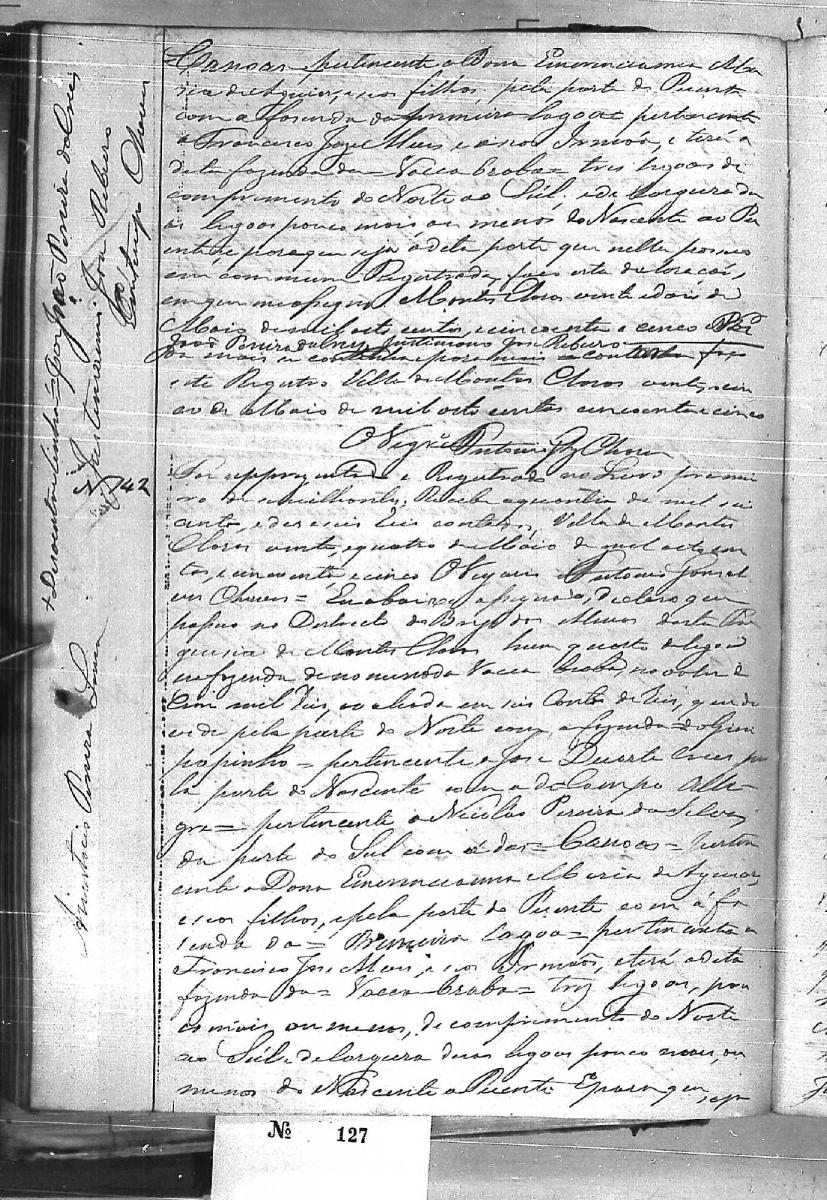 Canoas, pertencente a Dona Emerencianna Ma
ria de Aguiar, e seos filhos, pela parte do Puente
com a fasenda da primeira lagoa = pertencente
a Francisco Joze e seos Irmãos, e terá a
dita fazenda da = Vacca braba = tres legoas de
comprimento do Norte ao Sul, e de largura du
as legoas pouco mais ou menos do Nascente ao Pu
ente, e para que seja a dita parte que nella possuo
em commum Registrada, faço esta declaração,
em que me assigno. Montes Claros vinte e dois de
Maio de mil oito centos, e cincoenta e cinco
João Pereira da Justiniano Jose Ribeiro
da mais se continha e para constar fiz
este Registro Villa de Montes Claros vinte, e cin
co de Maio de mil oito centos cincoenta e cinco
O Vigrº Antonio Glz Chaves
Foi apprezentado e Registrado no Livro primei
ro a semilhante, Recebi a quantia de mil sei
centos, e dezeseis reis contados, Villa de Montes
Claros vinte, e quatro de Maio de mil oito cen
tos, e cincoenta e cinco O Vigario Antonio Gonsal
ves Chaves = Eu abaixo assignado, declaro que
possuo no Districto do Brejo das Almas desta Fre
guesia de Montes Claros hum quarto de legoa
na fazenda denominada Vacca braba, no valor de
cem mil reis, avaliada em seis contos de reis, que di
vide pela parte do Norte com a fazenda = do Gini
papinho = pertencente a Jose Duarte pe
la parte do Nascente com a do Campo Alle
gre = pertencente a Nicolao Pereira da Silva,
da parte do Sul com a das = Canoas = Perten
cente a Dona Emerenciana Maria de Aguiar,
e seos filhos, e pela parte do Puente com a fa
senda da = Primeira Lagoa = pertencente a
Francisco Jose e seos Irmãos, e terá a dita
fazenda da = Vacca braba = tres legoas, pou
co mais ou menos, de comprimento do Norte
ao Sul e de largura duas legoas pouco mais, ou
menos do Nascente a Puente E para que, seja
João Pereira
Justiniano Jose Ribeiro
Chaves
N 142
Pereira
Nº 127